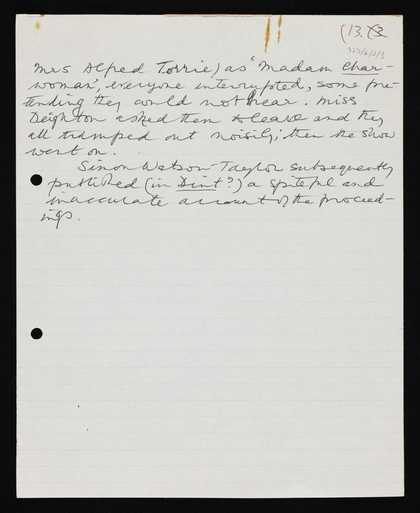 (13.)
Mrs Alfred Torrie) as 'Madam Char-
woman', everyone interrupted, some pre-
tending they could not hear. Miss
Deighton asked them to leave and they
all tramped out noisily; then the show
went on.
Simon Watson-Taylor subsequently
published (in Dint?) a spiteful and
inaccurate account of the proceed-
ings.